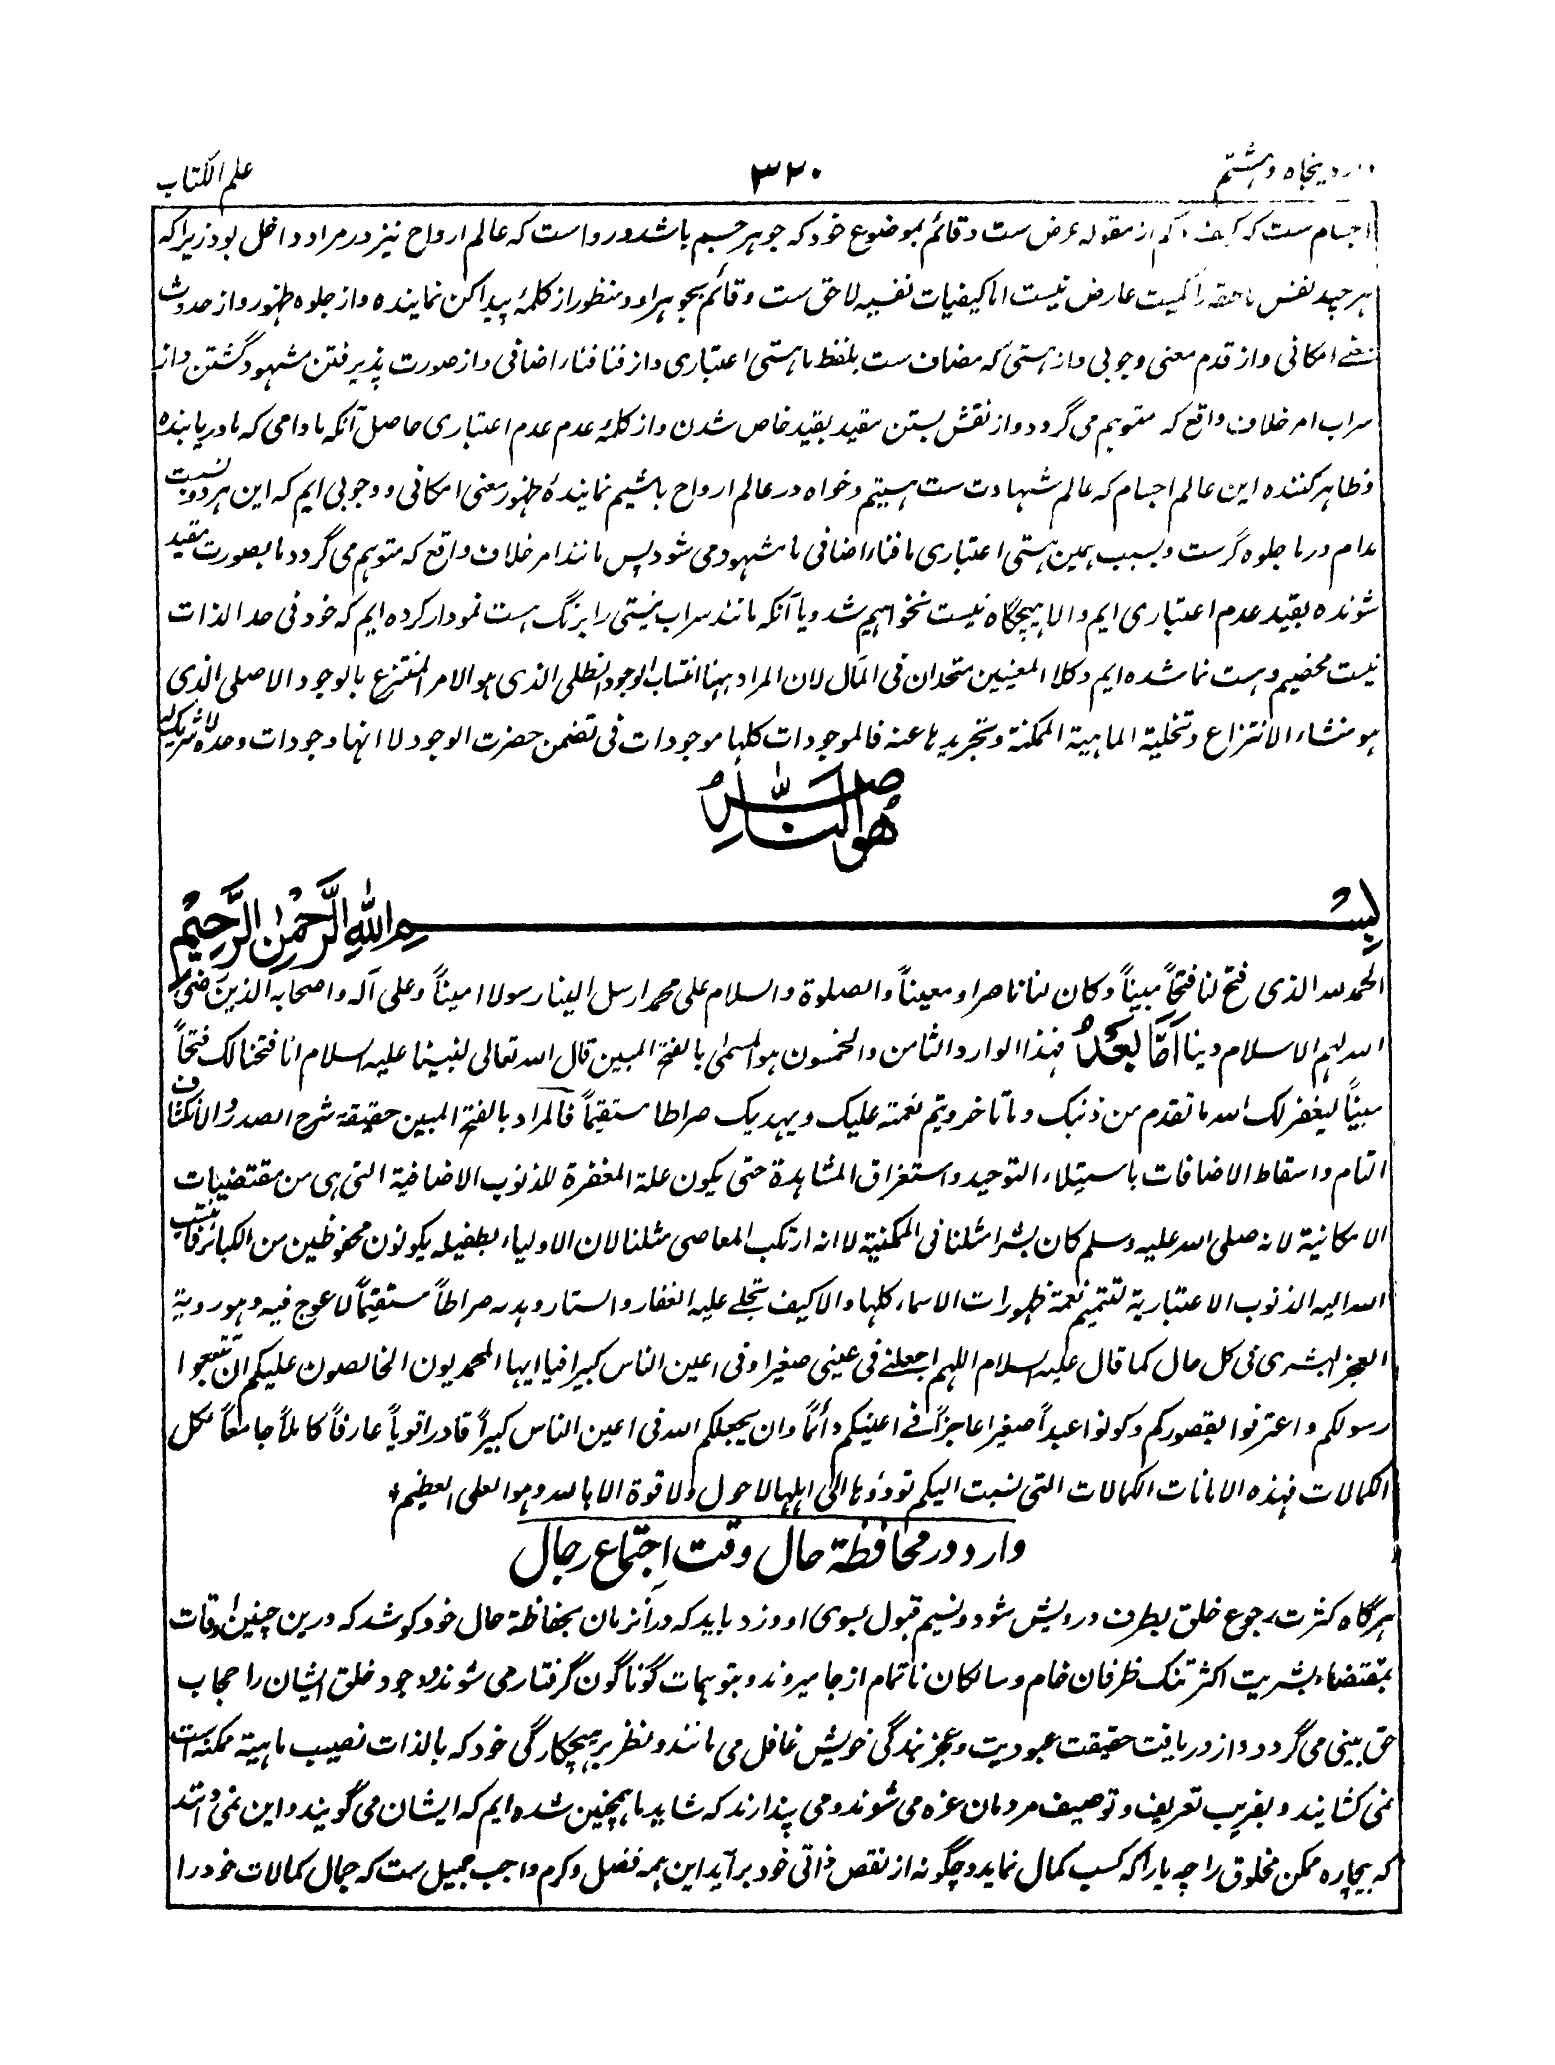 وارد پنجاه و هشتم ۳۲۰ علم الکتاب
اجسام ست که کیف و کم از مقوله عرض ست و قائم بموضوع خود که جوهر جسم باشد و رواست که عالم ارواح نیز در مراد داخل بود زیرا که
هر چند نفس ناطقه را کمیت عارض نیست اما کیفیات نفسیه لاحق ست و قائم بجوهر او و منظور از کلمۀ پیدا کن نماینده و از جلوه ظهور و از حدوث
معنے امکانی و از قدم معنی وجوبی و از هستی که مضاف ست بلفظ ما هستی اعتباری و از فنا فناء اضافی و از صورت پذیرفتن مشهود گشتن و از
سراب امر خلاف واقع که متوهم می گردد و از نقش بستن مقید بقید خاص شدن و از کلمۀ عدم عدم اعتباری حاصل آنکه مادامی که ما دریابنده
و ظاهر کننده این عالم اجسام که عالم شهادت ست هستیم و خواه در عالم ارواح باشیم نمایندۀ ظهور معنی امکانی و وجوبی ایم که این هر دو نسبت
مدام در ما جلوه گرست و بسبب همین هستی اعتباری ما فناء اضافی ما مشهود می شود پس مانند امر خلاف واقع که متوهم می گردد ما بصورت مقید
شونده بقید عدم اعتباری ایم والا هیچگاه نیست نخواهیم شد و یا آنکه مانند سراب نیستی را برنگ هست نمودار کرده ایم که خود فی حد الذات
نیست محضیم و هست نما شده ایم و کلا المعنیین متحدان فی المآل لان المراد ههنا انتساب الوجود الظلی الذی هو الامر المنتزع بالوجود الاصلی الذی
هو منشاء الانتزاع و تخلیة الماهیة الممکنة و تجریدها عنه فالموجودات کلها موجودات فی تضمن حضرت الوجود لا انها وجودات وحده لا شریک له
هو الله الناصر
بسم الله الرحمن الرحیم
الحمد لله الذی فتح لنا فتحاً مبیناً و کان لنا ناصرا و معیناً والصلوة والسلام علی محمد ارسل الینا رسولا امیناً و علی آله و اصحابه الذین رضی
الله لهم الاسلام دینا اما بعد فهذا الوارد الثامن والخمسون هو المسمی بالفتح المبین قال الله تعالی لنبینا علیه السلام انا فتحنا لک فتحاً
مبیناً لیغفر لک الله ما تقدم من ذنبک و ما تاخر و یتم نعمته علیک و یهدیک صراطا مستقیماً فالمراد بالفتح المبین حقیقة شرح الصدر والانکشاف
التام و اسقاط الاضافات باستیلاء التوحید و استغراق المشاهدة حتی یکون علة المغفرة للذنوب الاضافیة التی هی من مقتضیات
الامکانیة لانه صلی الله علیه وسلم کان بشرا مثلنا فی الممکنیة لا انه ارتکب المعاصی مثلنا لان الاولیاء بطفیله یکونون محفوظین من الکبائر فانتسب
الله الیه الذنوب الاعتباریة لتتمیم نعمة ظهورات الاسماء کلها والا کیف تجلے علیه الغفار والستار و یدیه صراطاً مستقیماً لا عوج فیه و هو رویة
العجز البشری فی کل حال کما قال علیه السلام اللهم اجعلنے فی عینی صغیرا و فی اعین الناس کبیرا فیا ایها المحمدیون الخالصون علیکم ان تتبعوا
رسولکم و اعترفوا بقصورکم و کونوا عبداً صغیرا عاجزاً فے اعینکم دائماً و ان یجعلکم الله فی اعین الناس کبیراً قادرا قویاً عارفاً کاملاً جامعاً لکل
الکمالات فهذه الامانات الکمالات التی نسبت الیکم تودوها الی اهلها لا حول ولا قوة الا بالله و هو العلی العظیم
وارد در محافظة حال وقت اجتماع رجال
هرگاه کثرت رجوع خلق بطرف درویش شود و نسیم قبول بسوی او وزد باید که در آنزمان بحفاظة حال خود کوشد که درین چنین اوقات
بمقتضاء بشریت اکثر تنک ظرفان خام و سالکان ناتمام از جا میروند و بتوهمات گوناگون گرفتار می شوند و وجود خلق ایشان را حجاب
حق بینی می گردد و از دریافت حقیقت عبودیت و عجز بندگی خویش غافل می مانند و نظر بر هیچکارگی خود که بالذات نصیب ماهیته ممکنه است
نمی کشایند و بفریب تعریف و توصیف مردمان غره می شوند و می پندارند که شاید ما همچنین شده ایم که ایشان می گویند و این نمی دانند
که بیچاره ممکن مخلوق را چه یارا که کسب کمال نماید و چگونه از نقص ذاتی خود برآید این همه فضل و کرم واجب جمیل ست که جمال کمالات خود را